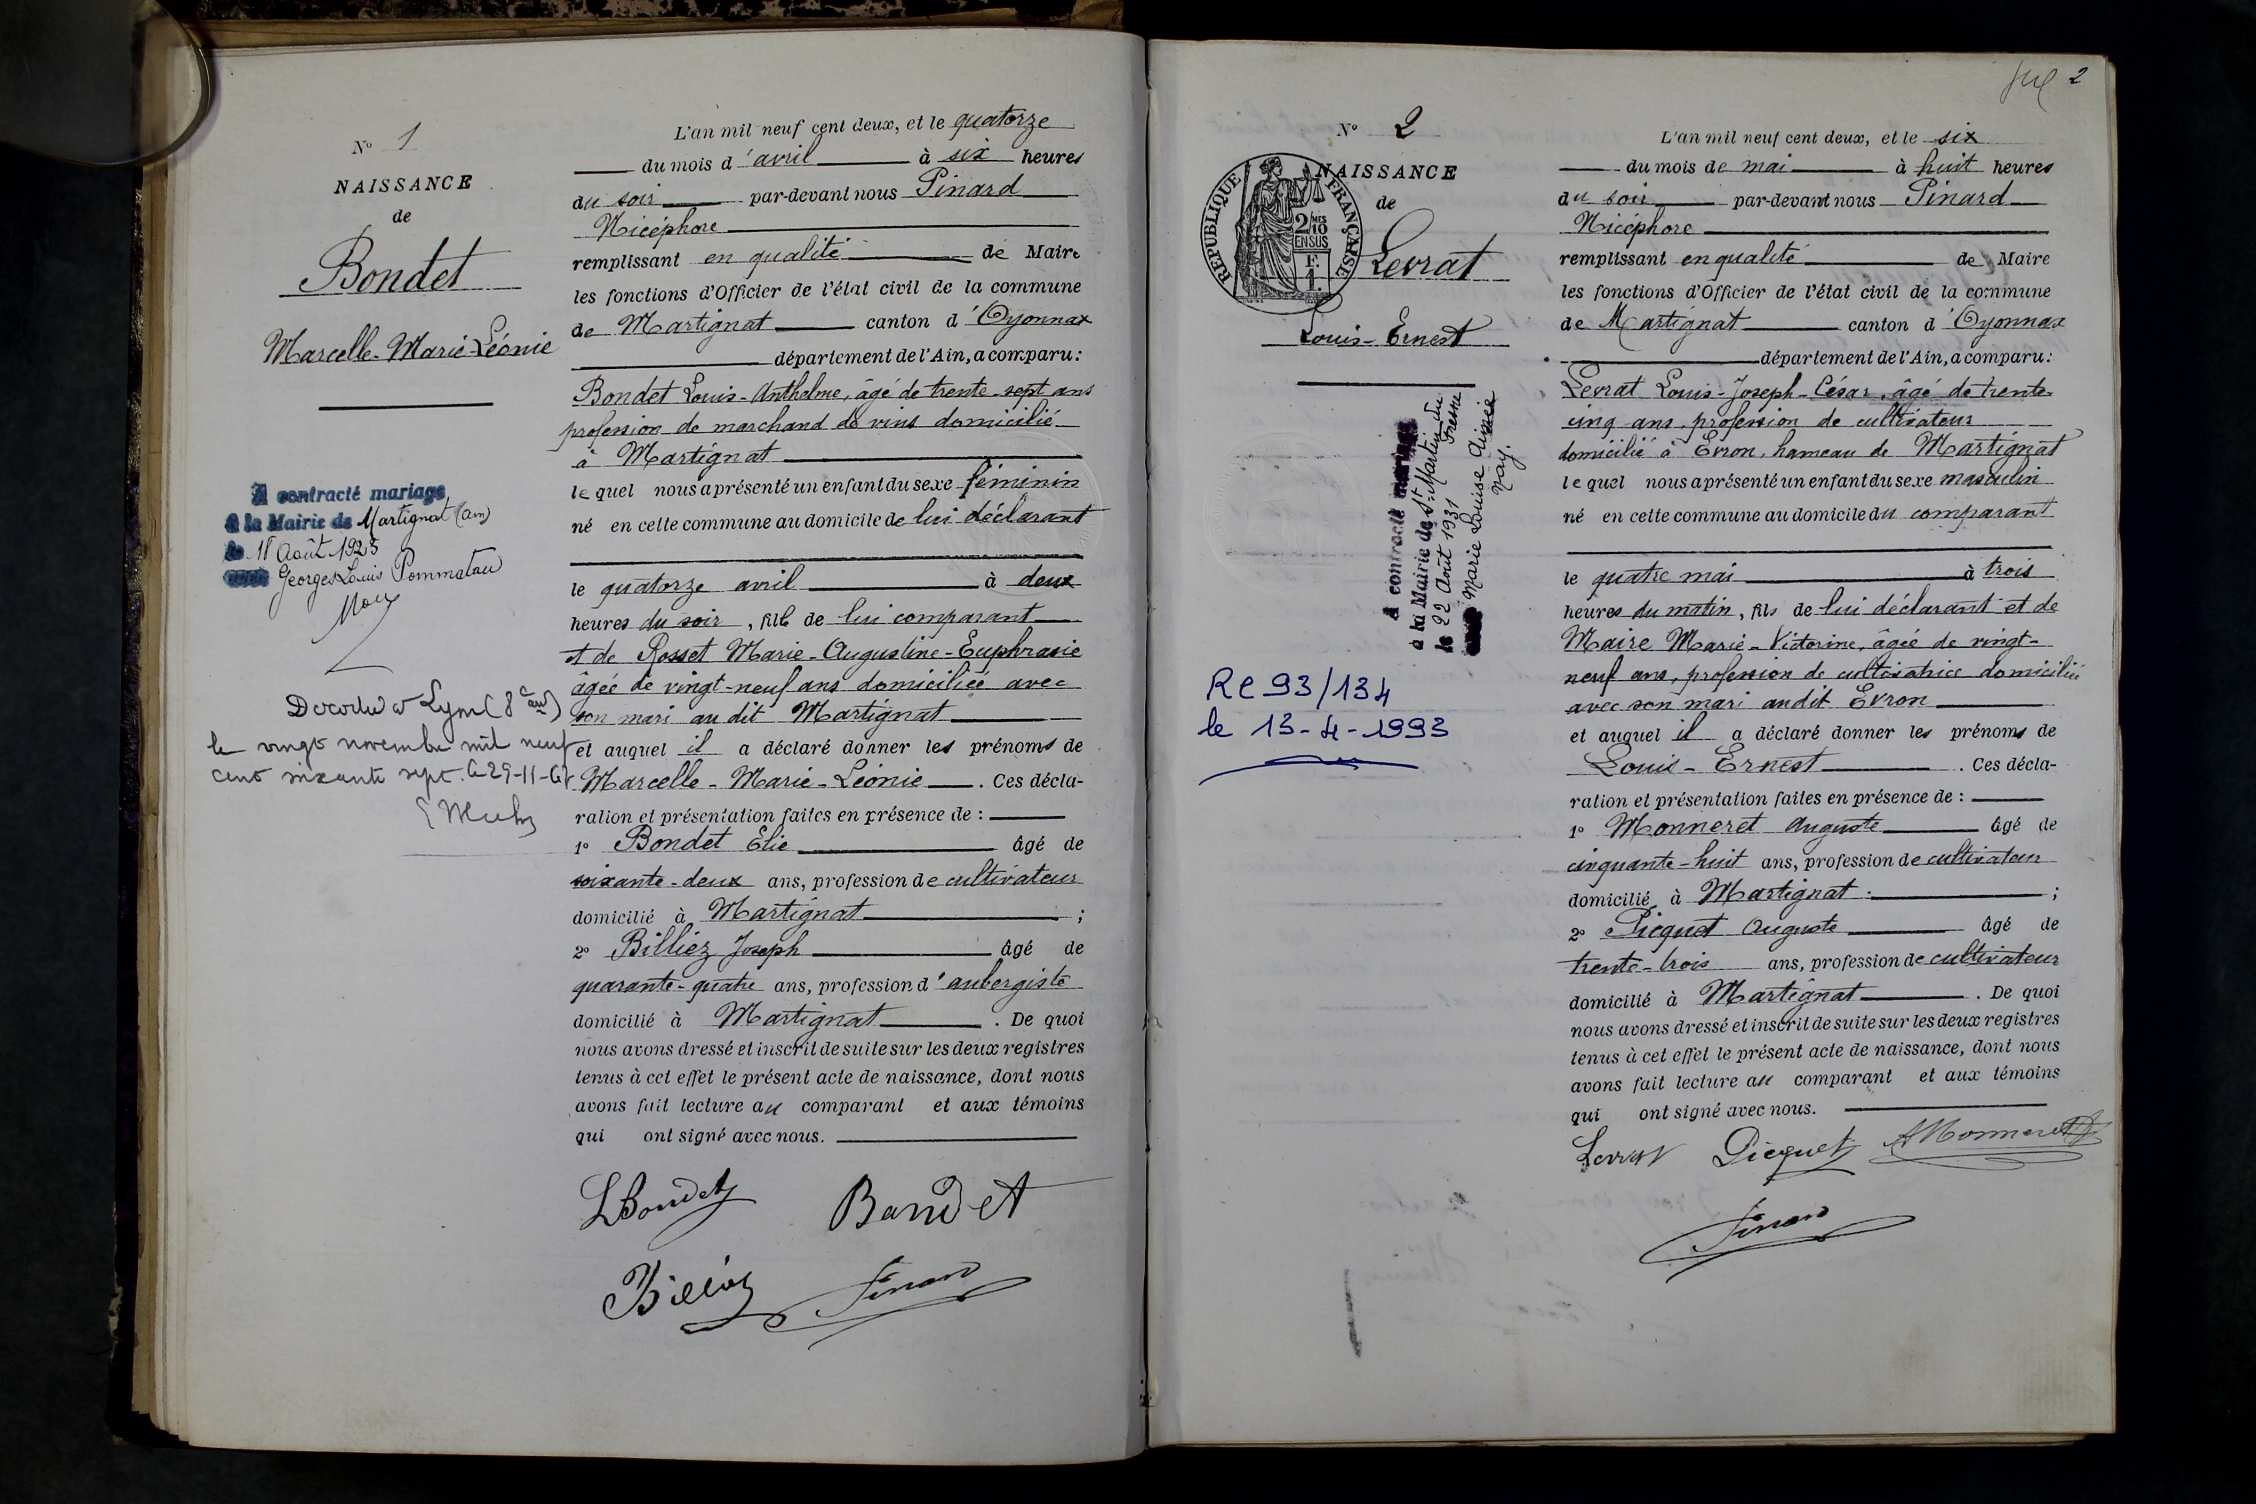 N° 1
NAISSANCE
de
Bondet
Marcelle-Marie-Léonie
A contracté mariage
à la Mairie de Martignat (Ain)
le 11 Août 1923
avec Georges Louis Pommatau
Décédée à Lyon (8e arrt)
le vingt novembre mil neuf
cent soixante sept. Le 29-11-67
L'an mil neuf cent deux, et le quatorze
du mois d'avril à six heures
du soir par-devant nous Pinard
Nicéphore
remplissant en qualité de Maire
les fonctions d'Officier de l'état civil de la commune
de Martignat canton d'Oyonnax
département de l'Ain, a comparu:
Bondet Louis-Anthelme, âgé de trente-sept ans
profession de marchand de vins domicilié
à Martignat
lequel nous a présenté un enfant du sexe féminin
né en cette commune au domicile de lui déclarant
le quatorze avril à deux
heures du soir, fille de lui comparant
et de Rosset Marie-Augustine-Euphrasie
âgée de vingt-neuf ans domiciliée avec
son mari au dit Martignat
et auquel il a déclaré donner les prénoms de
Marcelle-Marie-Léonie. Ces décla-
ration et présentation faites en présence de :
1° Bondet Elie âgé de
soixante-deux ans, profession de cultivateur
domicilié à Martignat ;
2° Billiez Joseph âgé de
quarante-quatre ans, profession d'aubergiste
domicilié à Martignat. De quoi
nous avons dressé et inscrit de suite sur les deux registres
tenus à cet effet le présent acte de naissance, dont nous
avons fait lecture au comparant et aux témoins
qui ont signé avec nous.
LBondet Bondet
Billiez Pinard
2
N° 2
NAISSANCE
de
REPUBLIQUE FRANÇAISE
2/10 MES
EN SUS
F.
1.
Levrat
Louis-Ernest
A contracté mariage
à la Mairie de St Martin du Fresne
le 22 Août 1931
avec Marie Louise Aimée
Nay.
RC 93/134
le 13-4-1993
L'an mil neuf cent deux, et le six
du mois de mai à huit heures
du soir par-devant nous Pinard
Nicéphore
remplissant en qualité de Maire
les fonctions d'Officier de l'état civil de la commune
de Martignat canton d'Oyonnax
département de l'Ain, a comparu:
Levrat Louis-Joseph-César, âgé de trente-
cinq ans, profession de cultivateur
domicilié à Evron, hameau de Martignat
lequel nous a présenté un enfant du sexe masculin
né en cette commune au domicile du comparant
le quatre mai à trois
heures du matin, fils de lui déclarant et de
Maire Marie-Victorine, âgée de vingt-
neuf ans, profession de cultivatrice domiciliée
avec son mari audit Evron
et auquel il a déclaré donner les prénoms de
Louis-Ernest. Ces décla-
ration et présentation faites en présence de :
1° Monneret Auguste âgé de
cinquante-huit ans, profession de cultivateur
domicilié à Martignat ;
2° Picquet Auguste âgé de
trente-trois ans, profession de cultivateur
domicilié à Martignat. De quoi
nous avons dressé et inscrit de suite sur les deux registres
tenus à cet effet le présent acte de naissance, dont nous
avons fait lecture au comparant et aux témoins
qui ont signé avec nous.
Levrat Picquet AMonneret
Pinard